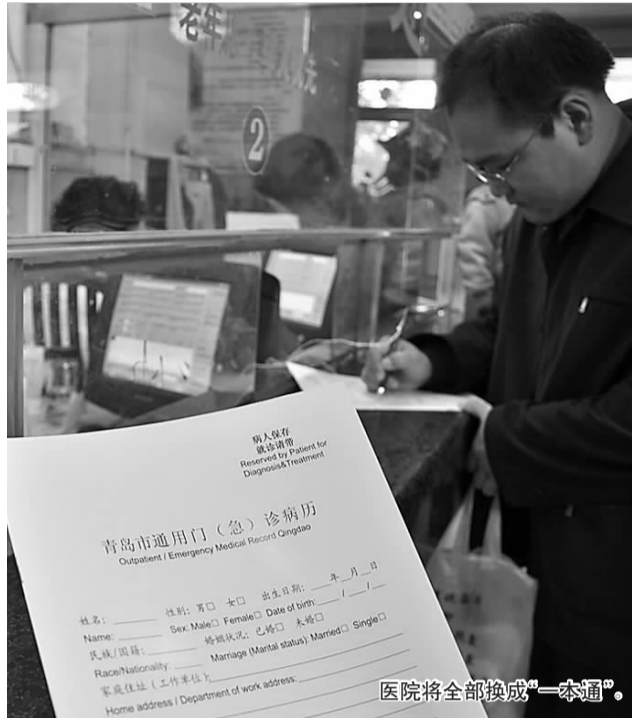 老年
2
病人保存
就诊请带
Reserved by Patient for
Diagnosis&Treatment
青岛市通用门（急）诊病历
Outpatient / Emergency Medical Record Qingdao
姓名：______ 性别：男□ 女□ 出生日期：___年__月__日
Name: ______ Sex: Male□ Female□ Date of birth: ___/___/___
民族/国籍：______ 婚姻状况：已婚□ 未婚□
Race/Nationality: ______ Marriage (Marital status): Married□ Single□
家庭住址（工作单位）：
Home address / Department of work address:
医院将全部换成“一本通”。